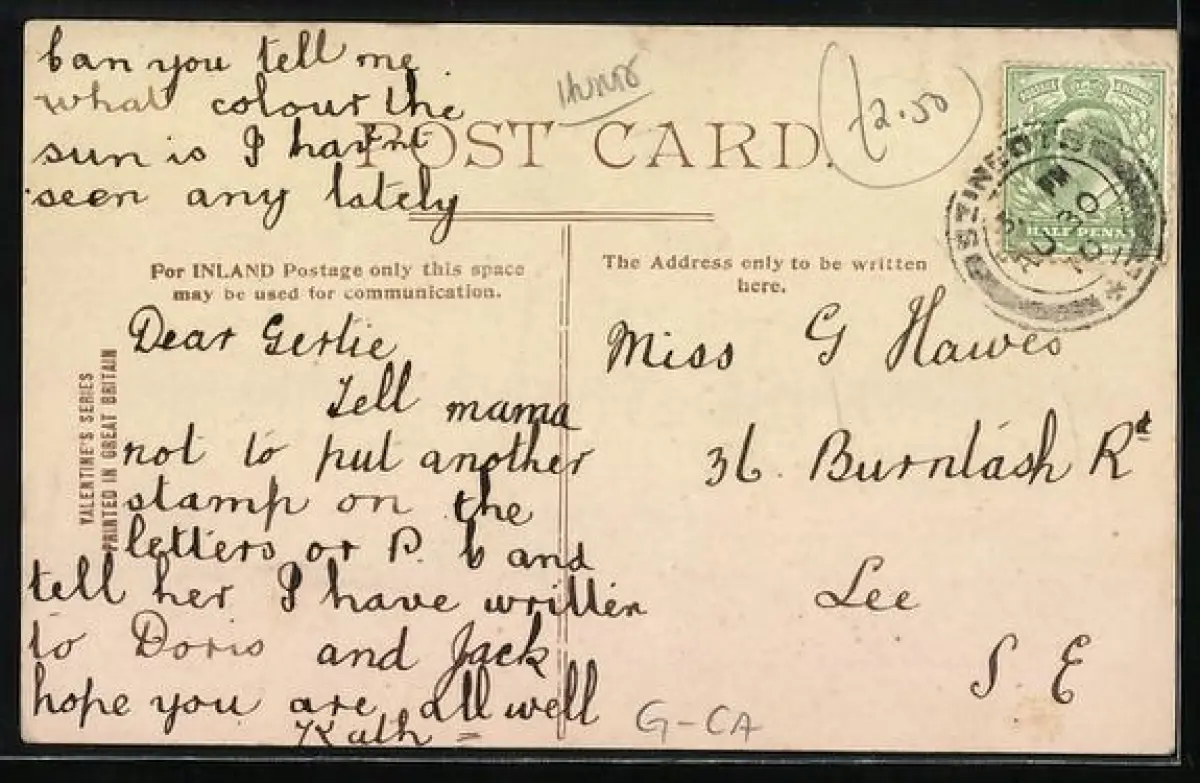 Can you tell me
what colour the
sun is I hav'nt
seen any lately
POST CARD.
12.50
HALF PENNY
3. PM
AU 30
10
For INLAND Postage only this space
may be used for communication.
The Address only to be written
here.
VALENTINE'S SERIES
PRINTED IN GREAT BRITAIN
Dear Gertie
Tell mama
not to put another
stamp on the
letters or P. C and
tell her I have written
to Doris and Jack
hope you are all well
Kath
Miss G Hawes
36. Burntash Rd
Lee
S E
G-CA